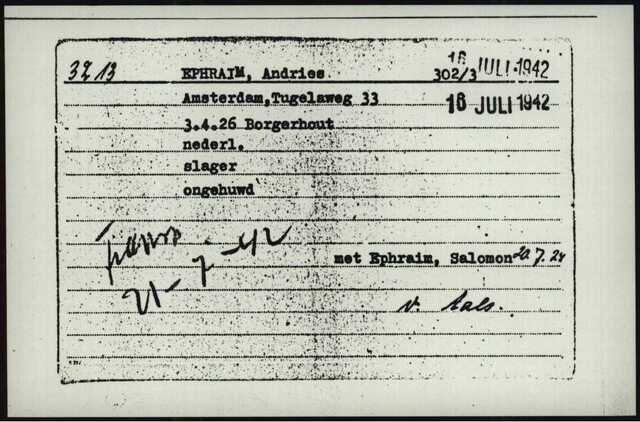 3213 EPHRAIM, Andries. 302/3 16 JULI 1942
Amsterdam,Tugelaweg 33 16 JULI 1942
3.4.26 Borgerhout
nederl.
slager
ongehuwd
21-7-42
met Ephraim, Salomon 20.7.24
v.